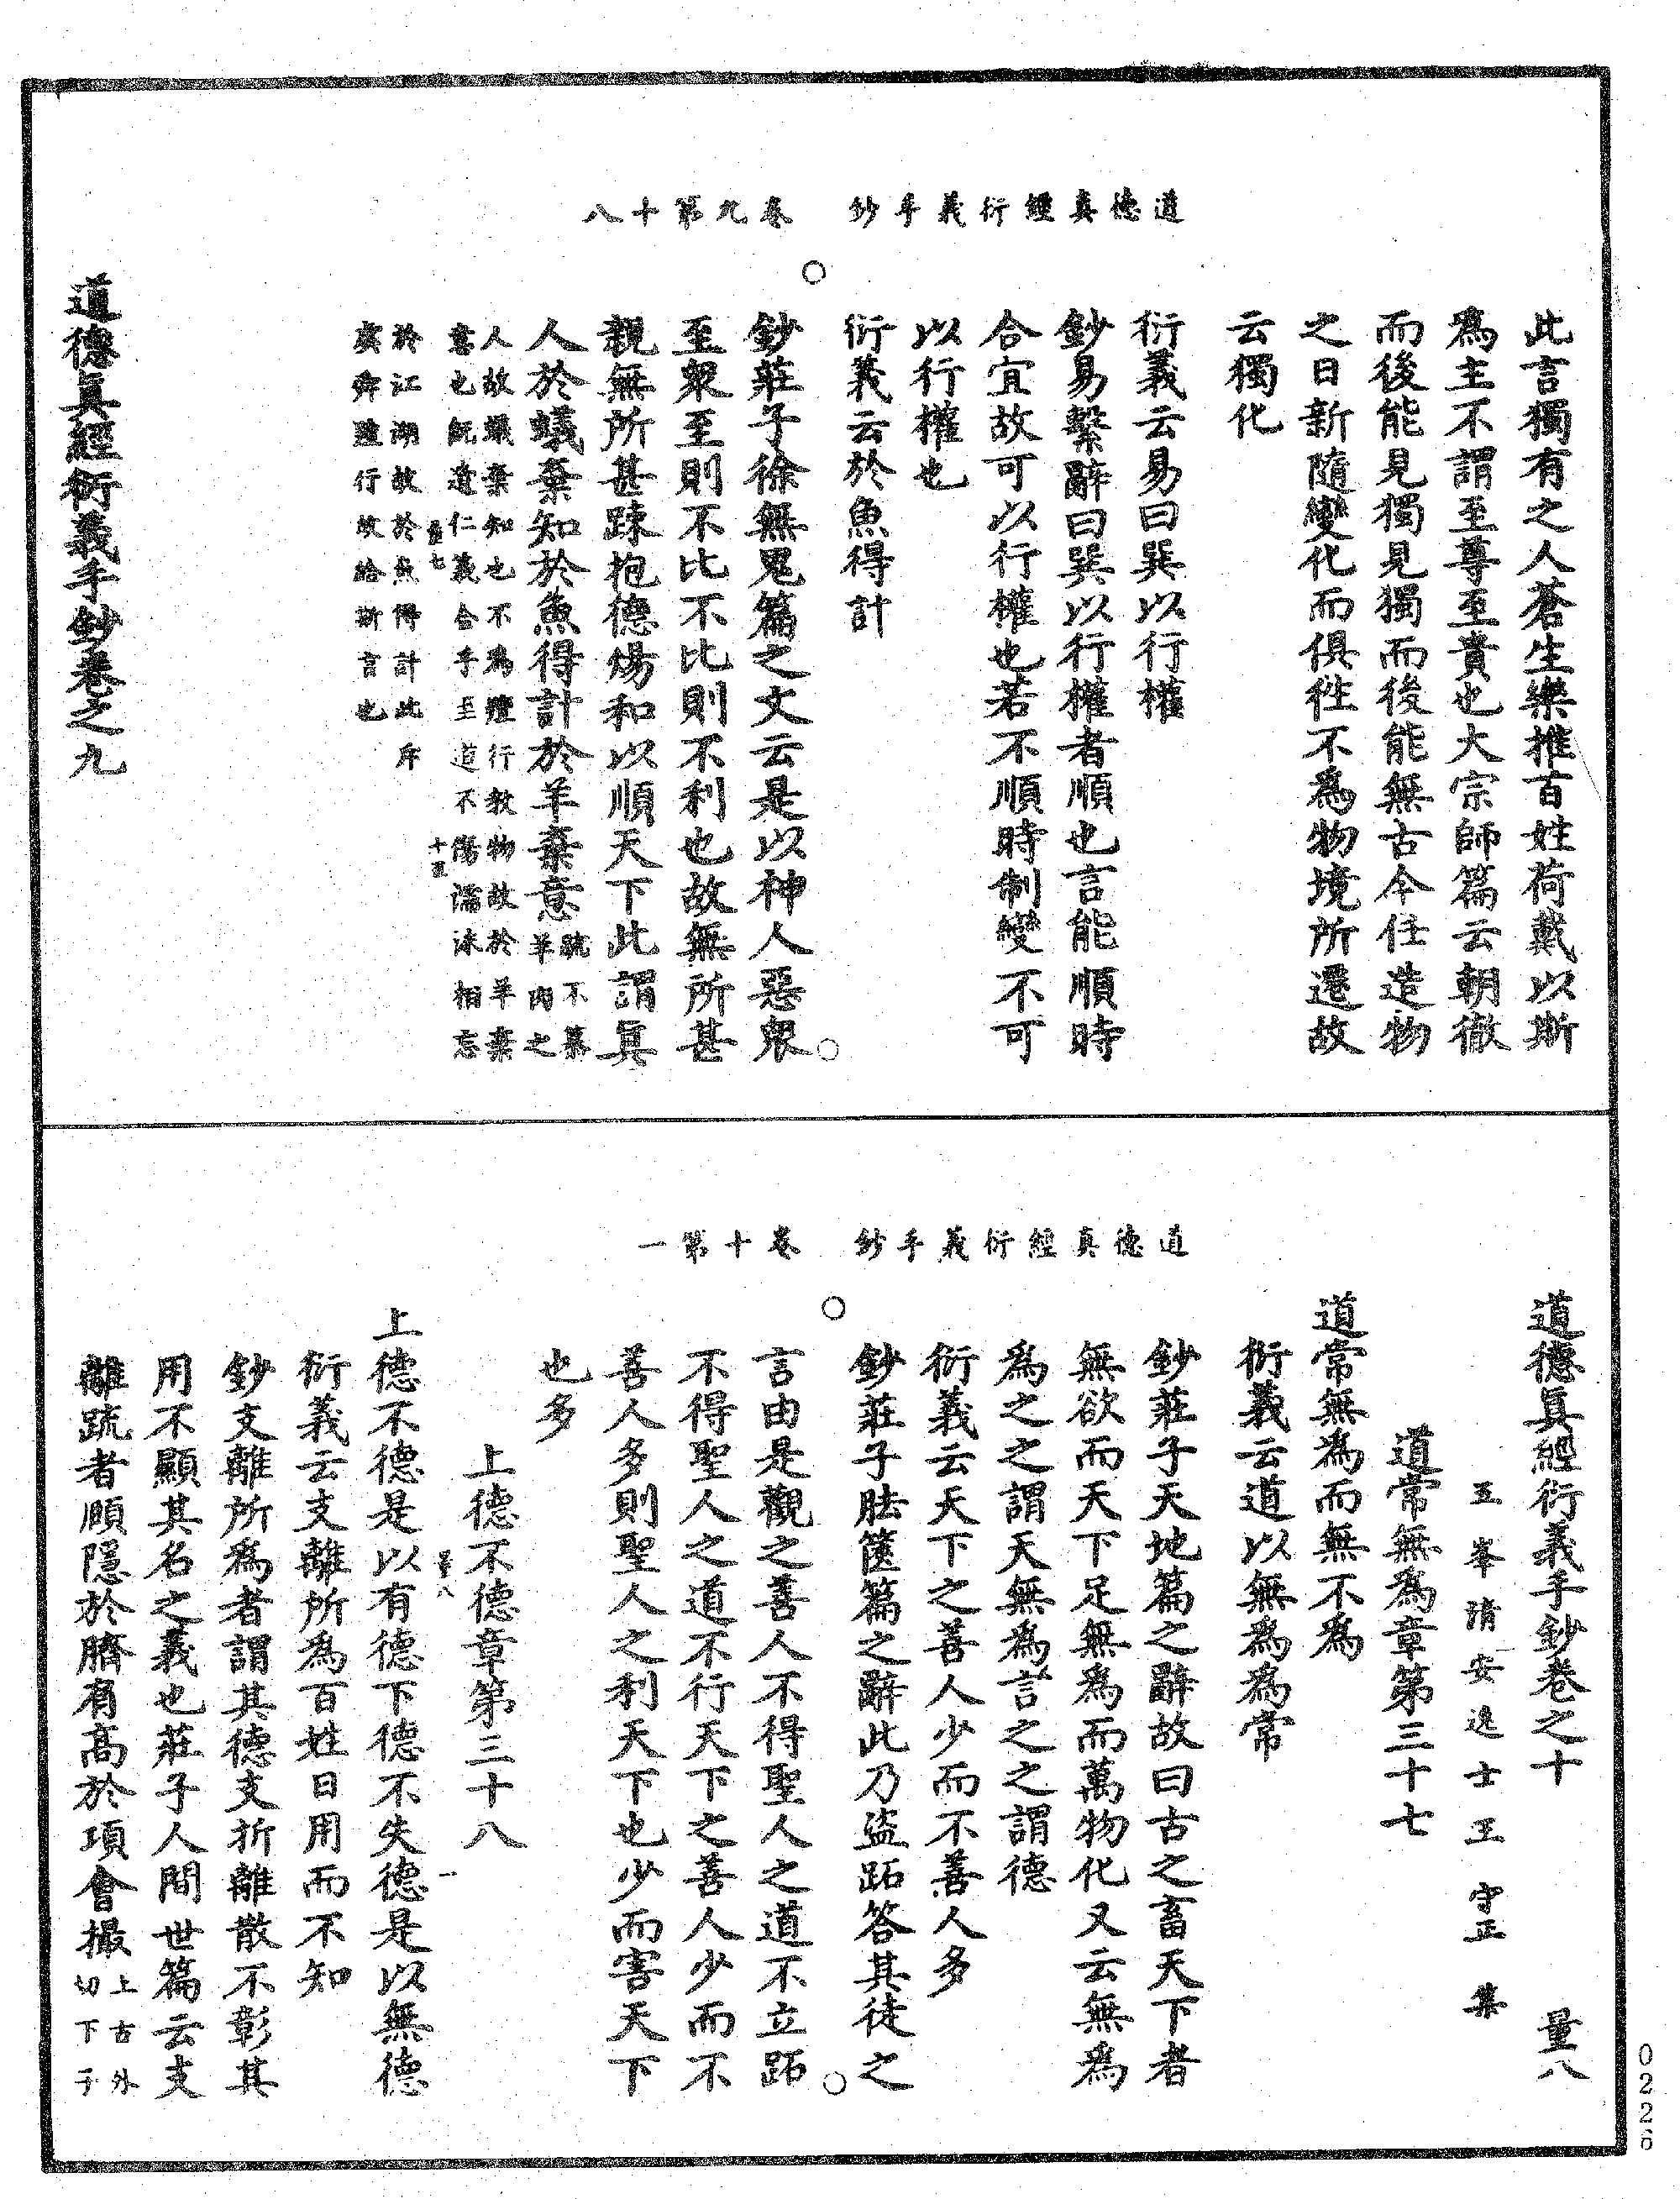 道德真經衍義手鈔　卷九第十八
此言獨有之人蒼生樂推百姓荷戴以斯
爲主不謂至尊至貴也大宗師篇云朝徹
而後能見獨見獨而後能無古今任造物
之日新隨變化而俱徃不為物境所遷故
云獨化
衍義云易曰巽以行權
鈔易繫辭曰巽以行權者順也言能順時
合宜故可以行權也若不順時制變不可
以行權也
衍義云於魚得計
鈔莊子徐無鬼篇之文云是以神人惡衆
至衆至則不比不比則不利也故無所甚
親無所甚踈抱德煬和以順天下此謂眞
人於蟻棄知於魚得計於羊棄意
疏不慕
羊肉之
人故蟻棄知也不為羶行教物故於羊棄
意也既遣仁義合乎至道不傷濡沫相忘
於江湖故於魚得計此斥
虞舜羶行故給斯言也
量七
十五
道德眞經衍義手鈔卷之九
道德真經衍義手鈔　卷十第一
道德眞經衍義手鈔卷之十　量八
五峯清安逸士王守正集
道常無為章第三十七
道常無為而無不為
衍義云道以無為為常
鈔莊子天地篇之辭故曰古之畜天下者
無欲而天下足無為而萬物化又云無為
為之之謂天無為言之之謂德
衍義云天下之善人少而不善人多
鈔莊子胠篋篇之辭此乃盜跖答其徒之
言由是觀之善人不得聖人之道不立跖
不得聖人之道不行天下之善人少而不
善人多則聖人之利天下也少而害天下
也多
上德不德章第三十八
量八
一
上德不德是以有德下德不失德是以無德
衍義云支離所為百姓日用而不知
鈔支離所為者謂其德支折離散不彰其
用不顯其名之義也莊子人間世篇云支
離疏者頤隱於臍肩高於項會撮
上古外
切下子
0226